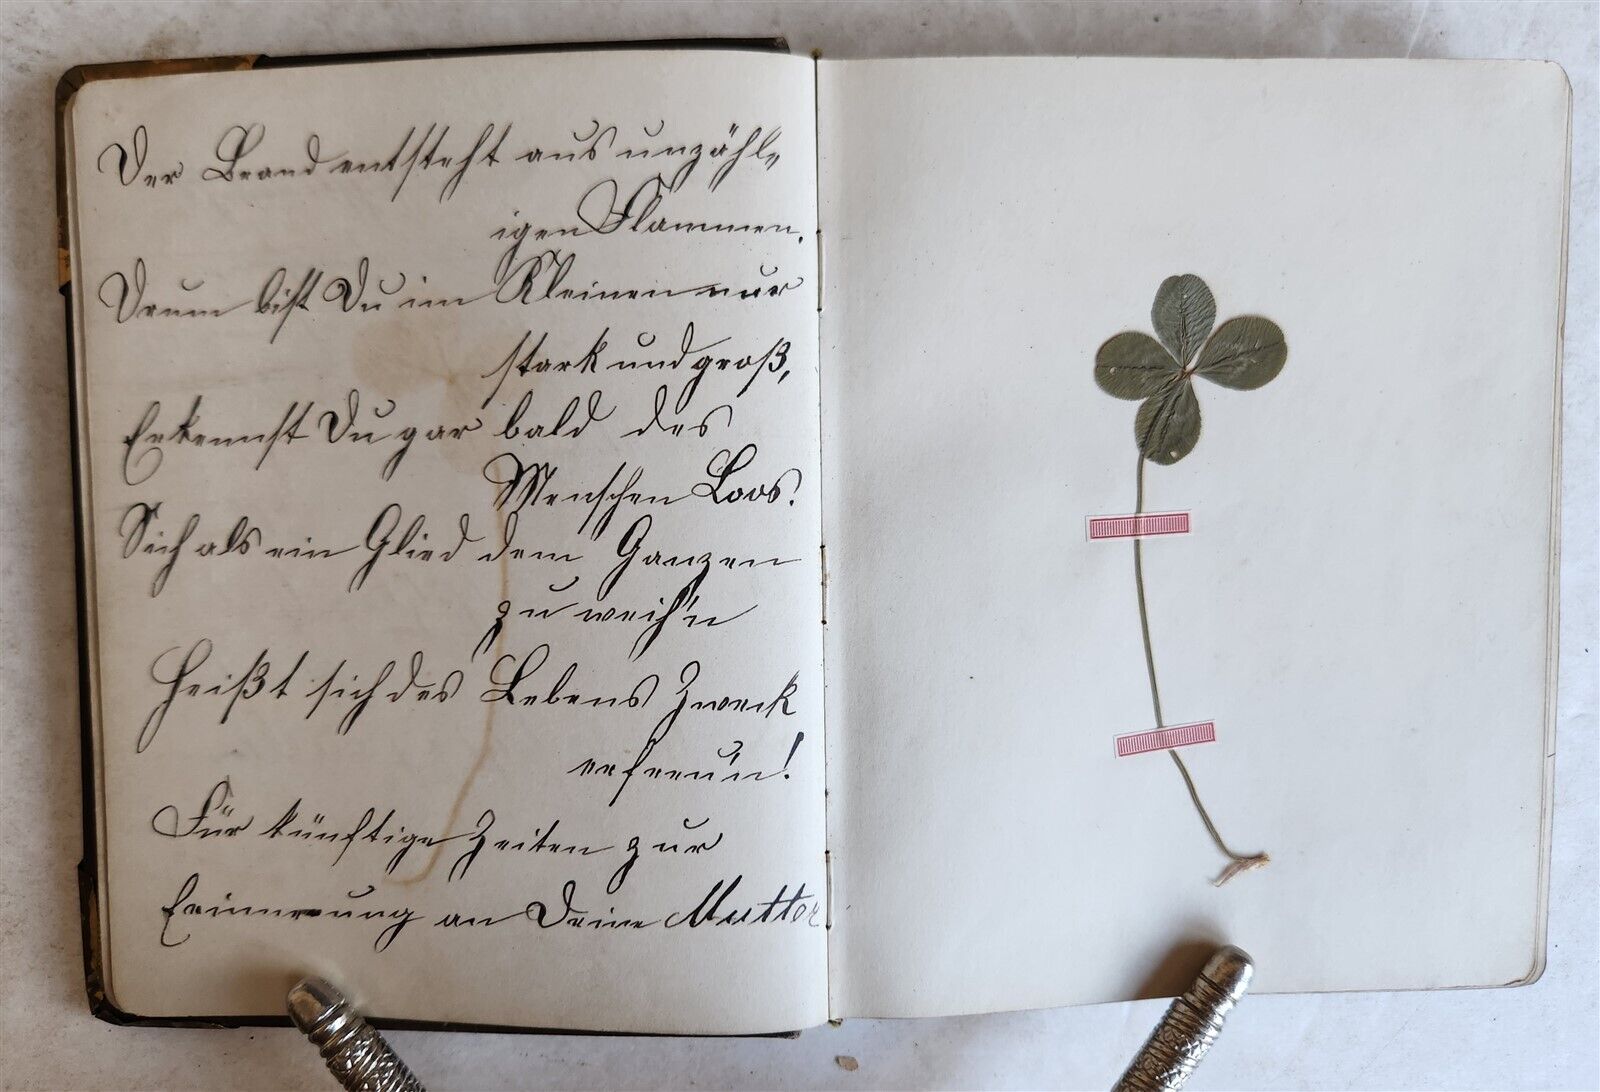 Der Brand entsteht aus unzähl„
igen Flammen.
Drum bist Du im Kleinen nur
stark und groß,
Erkennst Du gar bald des
Menschen Loos.
Sich als ein Glied dem Ganzen
zu weih'n
Heißt sich des Lebens Zweck
erfreu'n!
Für künftige Zeiten zur
Erinnerung an Deine Mutter